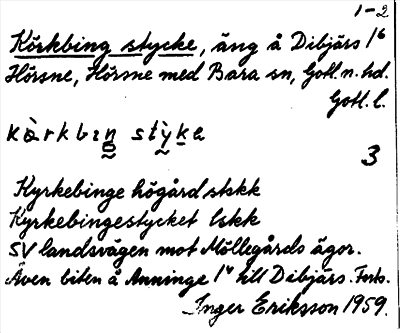 1-2
Körkbing stycke, äng å Dibjärs 1⁶
Hörsne, Hörsne med Bara sn, Gotl. n. hd.
Gotl. l.
kàrkbıŋ stỳka
3
Kyrkebinge högård stskk
Kyrkebingestycket lskk
SV landsvägen mot Möllegårds ägor.
Även biten å Anninge 1ᵛ till Dibjärs. Forts.
Inger Eriksson 1959.